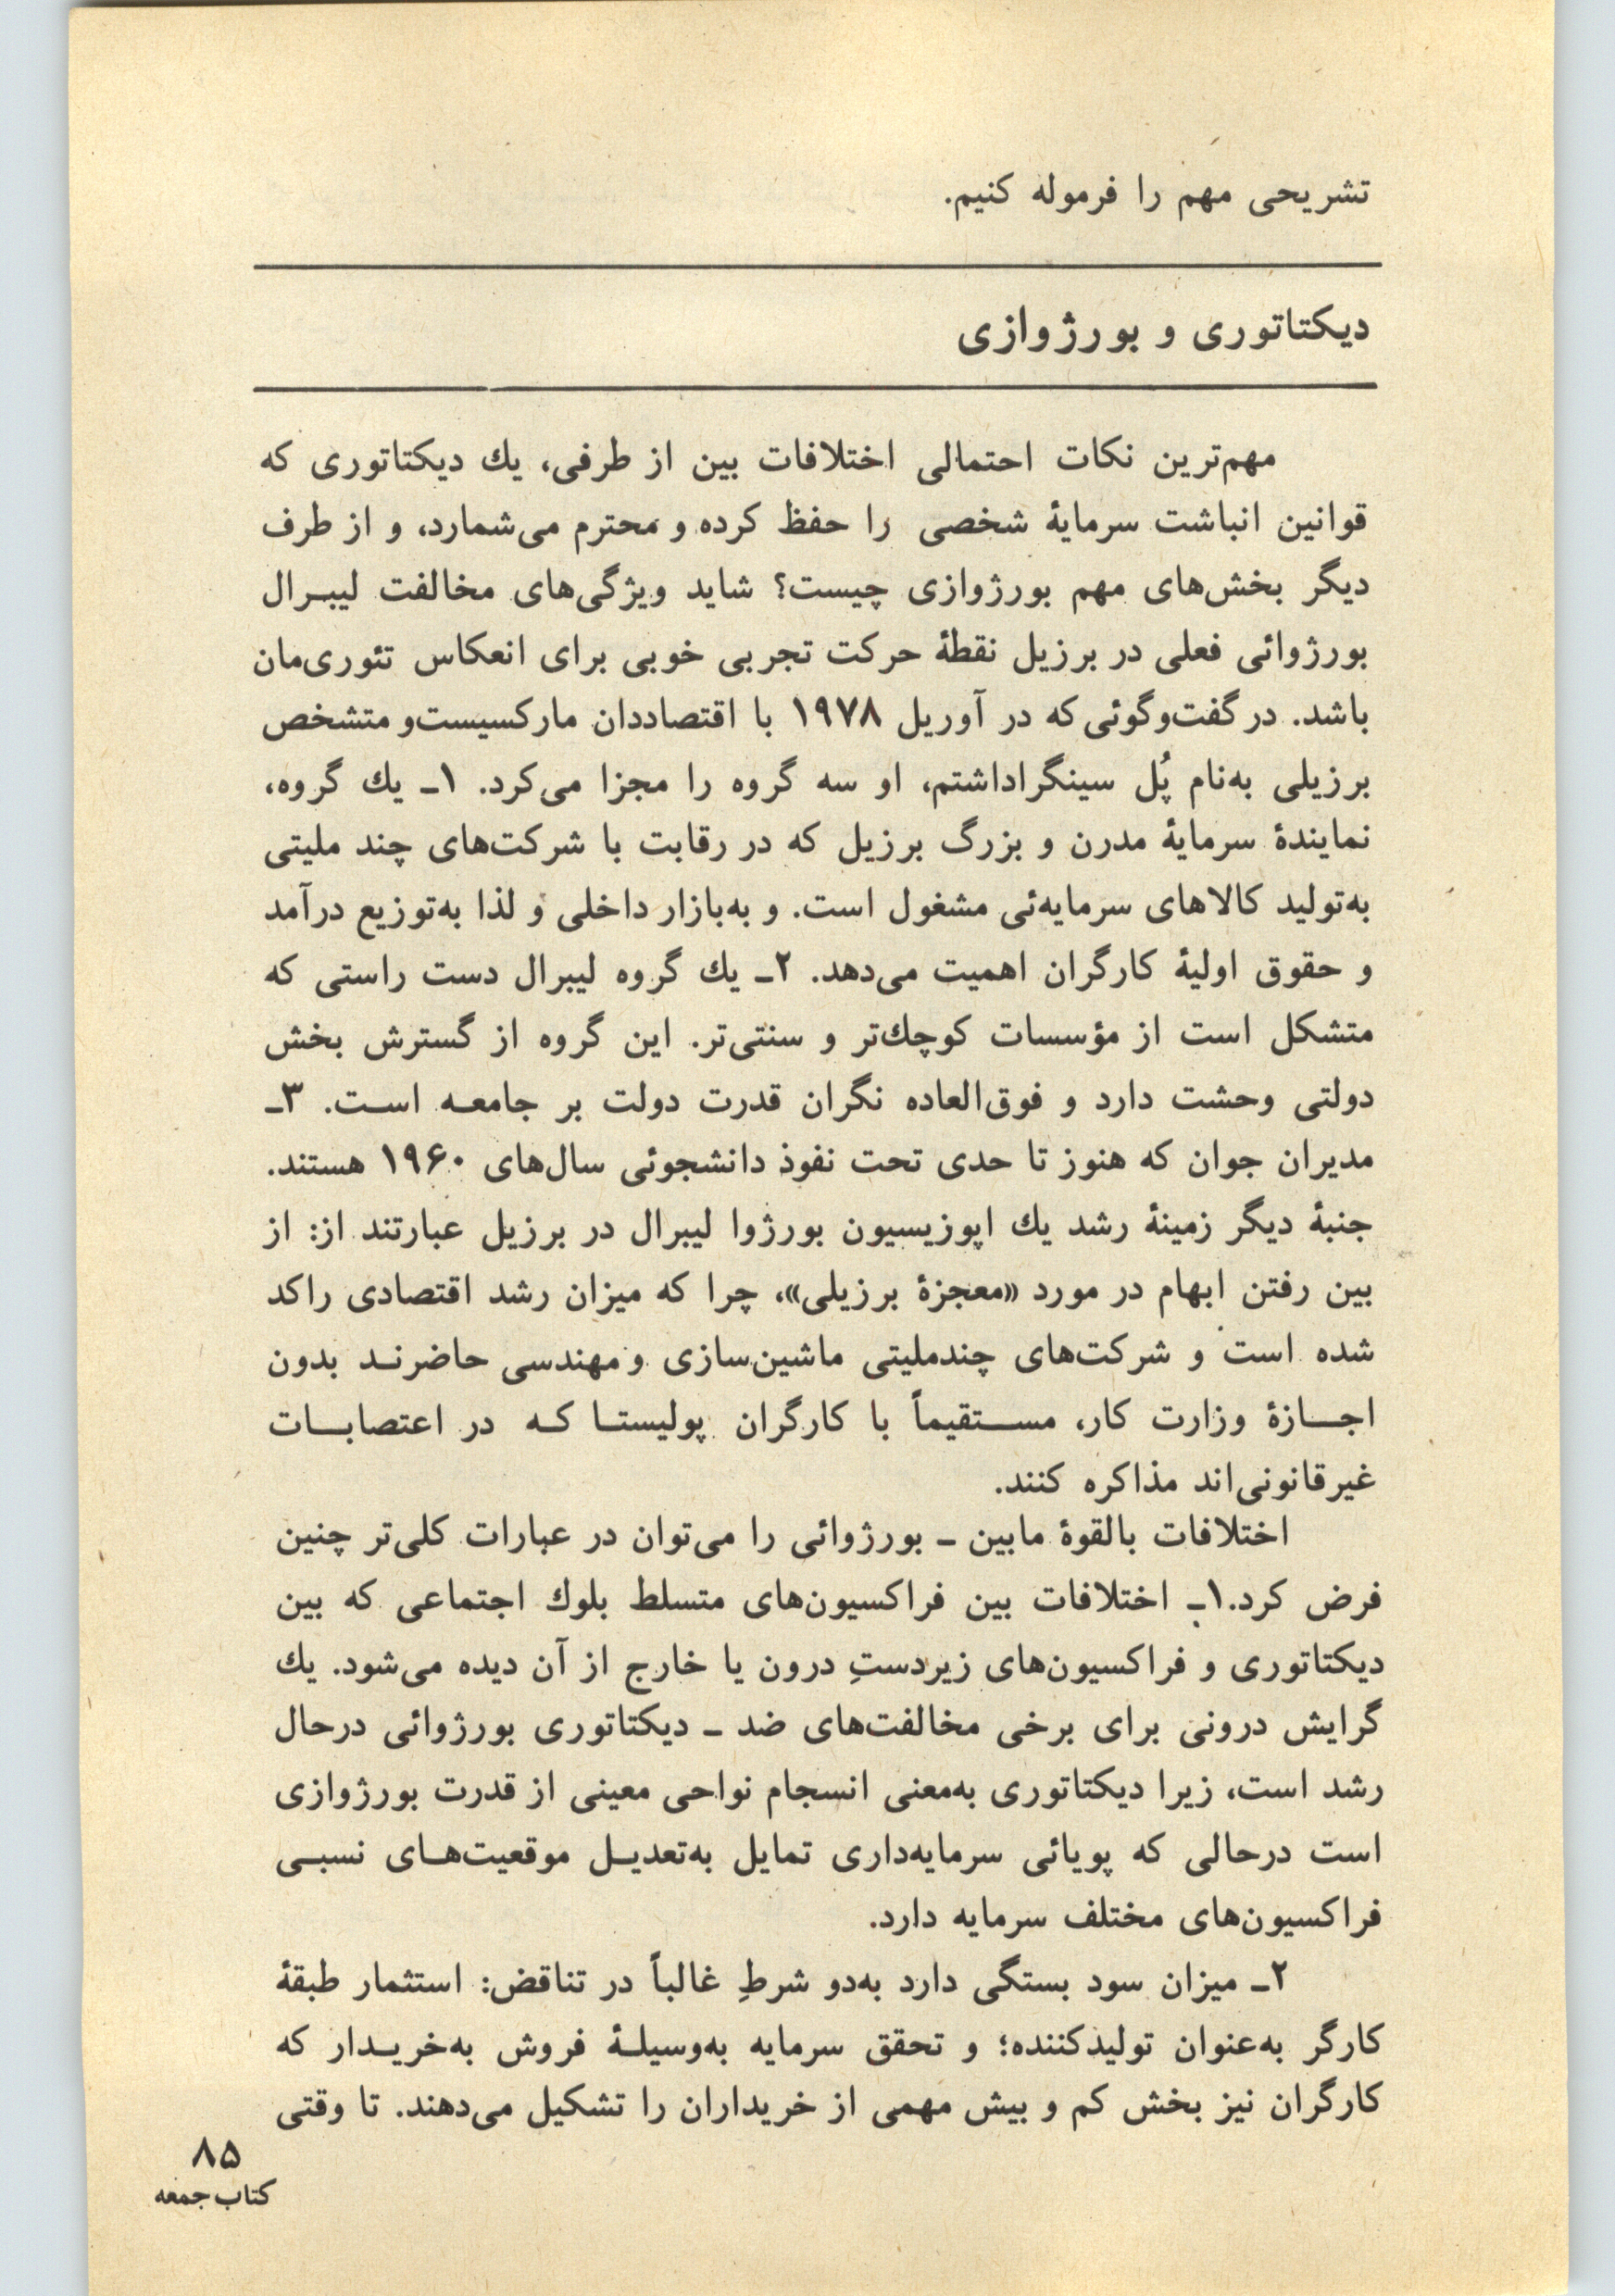 تشریحی مهم را فرموله کنیم.
دیکتاتوری و بورژوازی
مهم‌ترین نکات احتمالی اختلافات بین از طرفی، یك دیکتاتوری که
قوانین انباشت سرمایهٔ شخصی را حفظ کرده و محترم می‌شمارد، و از طرف
دیگر بخش‌های مهم بورژوازی چیست؟ شاید ویژگی‌های مخالفت لیبـرال
بورژوائی فعلی در برزیل نقطهٔ حرکت تجربی خوبی برای انعکاس تئوری‌مان
باشد. در گفت‌وگوئی که در آوریل ۱۹۷۸ با اقتصاددان مارکسیست‌و متشخص
برزیلی به‌نام پُل سینگراداشتم، او سه گروه را مجزا می‌کرد. ۱ـ یك گروه،
نمایندهٔ سرمایهٔ مدرن و بزرگ برزیل که در رقابت با شرکت‌های چند ملیتی
به‌تولید کالاهای سرمایه‌ئی مشغول است. و به‌بازار داخلی و لذا به‌توزیع درآمد
و حقوق اولیهٔ کارگران اهمیت می‌دهد. ۲ـ یك گروه لیبرال دست راستی که
متشکل است از مؤسسات کوچك‌تر و سنتی‌تر. این گروه از گسترش بخش
دولتی وحشت دارد و فوق‌العاده نگران قدرت دولت بر جامعـه اسـت. ۳ـ
مدیران جوان که هنوز تا حدی تحت نفوذ دانشجوئی سال‌های ۱۹۶۰ هستند.
جنبهٔ دیگر زمینهٔ رشد یك اپوزیسیون بورژوا لیبرال در برزیل عبارتند از: از
بین رفتن ابهام در مورد «معجزهٔ برزیلی»، چرا که میزان رشد اقتصادی راکد
شده است و شرکت‌های چندملیتی ماشین‌سازی و مهندسی حاضرنـد بدون
اجـــازهٔ وزارت کار، مســـتقیماً با کارگران پولیستـا کـه در اعتصابـــات
غیرقانونی‌اند مذاکره کنند.
اختلافات بالقوهٔ مابین ـ بورژوائی را می‌توان در عبارات کلی‌تر چنین
فرض کرد.۱ـ اختلافات بین فراکسیون‌های متسلط بلوك اجتماعی که بین
دیکتاتوری و فراکسیون‌های زیردستِ درون یا خارج از آن دیده می‌شود. یك
گرایش درونی برای برخی مخالفت‌های ضد ـ دیکتاتوری بورژوائی درحال
رشد است، زیرا دیکتاتوری به‌معنی انسجام نواحی معینی از قدرت بورژوازی
است درحالی که پویائی سرمایه‌داری تمایل به‌تعدیـل موقعیت‌هـای نسبـی
فراکسیون‌های مختلف سرمایه دارد.
۲ـ میزان سود بستگی دارد به‌دو شرطِ غالباً در تناقض: استثمار طبقهٔ
کارگر به‌عنوان تولیدکننده؛ و تحقق سرمایه به‌وسیلـهٔ فروش به‌خریـدار که
کارگران نیز بخش کم و بیش مهمی از خریداران را تشکیل می‌دهند. تا وقتی
۸۵
کتاب جمعه